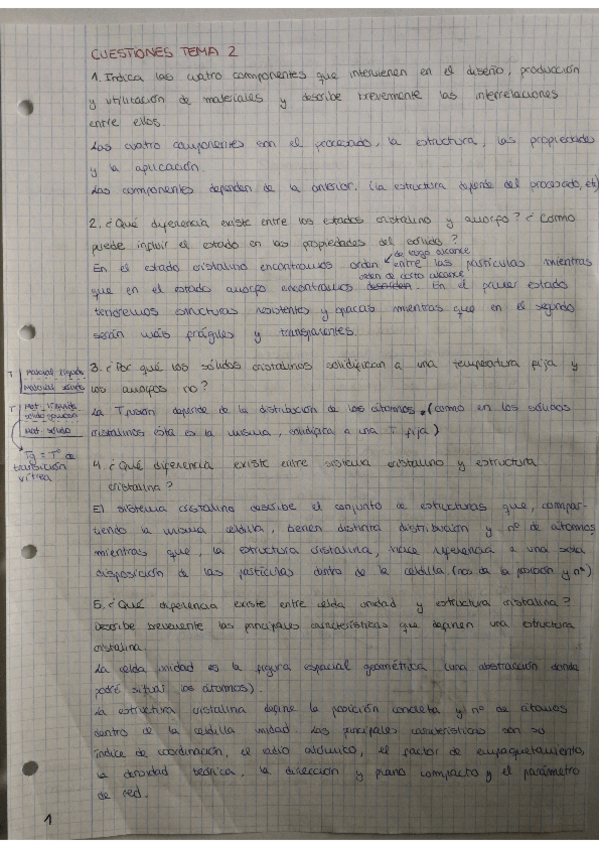 CUESTIONES TEMA 2
1. Indica las cuatro componentes que intervienen en el diseño, producción
y utilización de materiales y describe brevemente las interrelaciones
entre ellos.
Las cuatro componentes son el procesado, la estructura, las propiedades
y la aplicación.
Las componentes dependen de la anterior. (la estructura depende del procesado, etc)
2. ¿Qué diferencia existe entre los estados cristalino y amorfo? ¿Cómo
puede influir el estado en las propiedades del sólido?
de largo alcance
En el estado cristalino encontramos orden entre las partículas mientras
orden de corto alcance
que en el estado amorfo encontramos desorden. En el primer estado
tendremos estructuras resistentes y opacas mientras que en el segundo
serán más frágiles y transparentes.
3. ¿Por qué los sólidos cristalinos solidifican a una temperatura fija y
los amorfos no?
T Material líquido
Material sólido
T Mat. líquido
Mat. sólido
Tg = Tª de
transición
vítrea
La Tfusión depende de la distribución de los átomos. (como en los sólidos
cristalinos ésta es la misma, solidifica a una T fija)
4. ¿Qué diferencia existe entre sistema cristalino y estructura
cristalina?
El sistema cristalino describe el conjunto de estructuras que, compar-
tiendo la misma celdilla, tienen distinta distribución y nº de átomos,
mientras que, la estructura cristalina, hace referencia a una sola
disposición de las partículas dentro de la celdilla (nos da la posición y nº)
5. ¿Qué diferencia existe entre celda unidad y estructura cristalina?
Describe brevemente las principales características que definen una estructura
cristalina.
La celda unidad es la figura espacial geométrica (una abstracción donde
podré situar los átomos).
La estructura cristalina define la posición concreta y nº de átomos
dentro de la celdilla unidad. Las principales características son su
índice de coordinación, el radio atómico, el factor de empaquetamiento,
la densidad teórica, la dirección y plano compacto y el parámetro
de red.
1